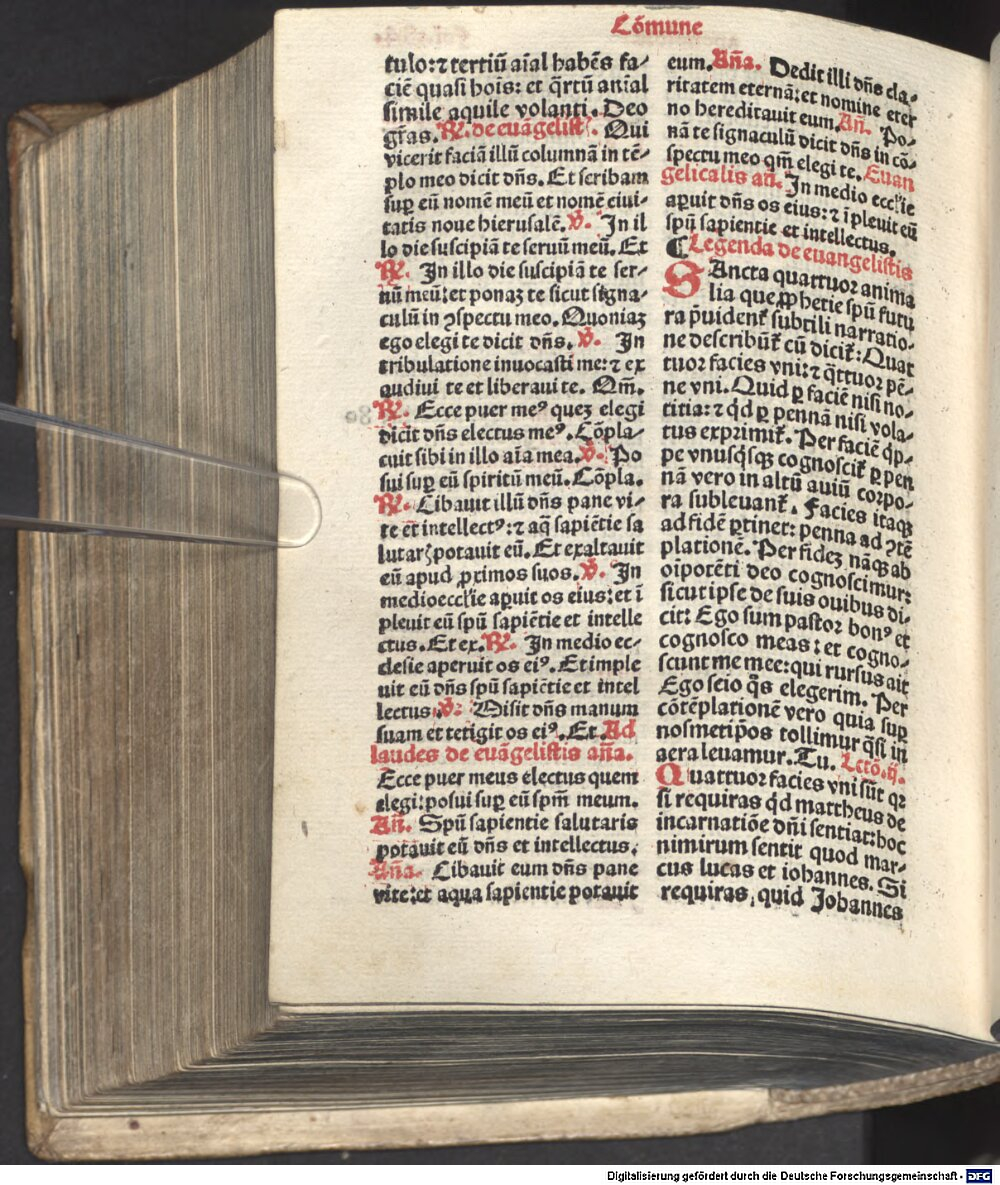 Cōmune
tulo: ⁊ tertiū aīal habēs fa⸗
ciē quasi hoīs: et q̄rtū anīal
simile aquile volanti. Deo
gr̄as. ℟. de euāgelist. Qui
vicerit faciā illū columnā in tē⸗
plo meo dicit dn̄s. Et scribam
suꝑ eū nomē meū et nomē ciui⸗
tatis noue hierusalē. ℣. In il
lo die suscipiā te seruū meū. Et
℟. In illo die suscipiā te ser⸗
uū meū: et ponaꝫ te sicut signa⸗
culū in ꝯspectu meo. Quoniaꝫ
ego elegi te dicit dn̄s. ℣. In
tribulatione inuocasti me: ⁊ ex
audiui te et liberaui te. Qm̄.
℟. Ecce puer meꝰ queꝫ elegi
dicit dn̄s electus meꝰ. Cōpla⸗
cuit sibi in illo aīa mea. ℣. Po
sui suꝑ eū spiritū meū. Cōpla.
℟. Cibauit illū dn̄s pane vi⸗
te et intellectꝰ: ⁊ aq̄ sapiētie sa
lutar potauit eū. Et exaltauit
eū apud ꝓximos suos. ℣. In
medio eccl'ie aꝑuit os eius: et ī
pleuit eū spū sapiētie et intelle
ctus. Et ex. ℟. In medio ec⸗
clesie aperuit os eiꝰ. Et imple
uit eū dn̄s spū sapiētie et intel
lectus. ℣. Misit dn̄s manum
suam et tetigit os eiꝰ. Et. Ad
laudes de euāgelistis an̄a.
Ecce puer meus electus quem
elegi: posui suꝑ eū spm̄ meum.
An̄. Spū sapientie salutaris
potauit eū dn̄s et intellectus.
An̄a. Cibauit eum dn̄s pane
vite: et aqua sapientie potauit
eum. An̄a. Dedit illi dn̄s cla⸗
ritatem eternā: et nomine eter
no hereditauit eum. An̄. Po⸗
nā te signaculū dicit dn̄s in cō⸗
spectu meo qm̄ elegi te. Euan
gelicalis an̄. In medio eccl'ie
aꝑuit dn̄s os eius: ⁊ īpleuit eū
spū sapientie et intellectus.
¶ Legenda de euangelistis
SAncta quattuor anima
lia que ꝓphetie spū futu
ra p̄uidentr subtili narratio⸗
ne describūt cū dicit: Quat
tuor facies vni: ⁊ q̄ttuor pē⸗
ne vni. Quid ꝑ faciē nisi no⸗
titia: ⁊ qd ꝑ pennā nisi vola⸗
tus exprimit. Per faciē qp⸗
pe vnusqsqꝫ cognoscit ꝑ pen
nā vero in altū auiū corpo⸗
ra subleuant. Facies itaqꝫ
ad fidē ꝑtinet: penna ad ꝯtē
plationē. Per fideꝫ nāqꝫ ab
oīpotēti deo cognoscimur:
sicut ipse de suis ouibus di⸗
cit: Ego sum pastor bonꝰ et
cognosco meas: et cogno⸗
scunt me mee: qui rursus ait
Ego scio q̄s elegerim. Per
cōtēplationē vero quia suꝑ
nosmetip̄os tollimur q̄si in
aera leuamur. Tu. Lctō. ij.
Quattuor facies vni sūt qꝛ
si requiras qd mattheus de
incarnatiōe dn̄i sentiat: hoc
nimirum sentit quod mar⸗
cus lucas et iohannes. Si
requiras, quid Johannes
Digitalisierung gefördert durch die Deutsche Forschungsgemeinschaft - DFG